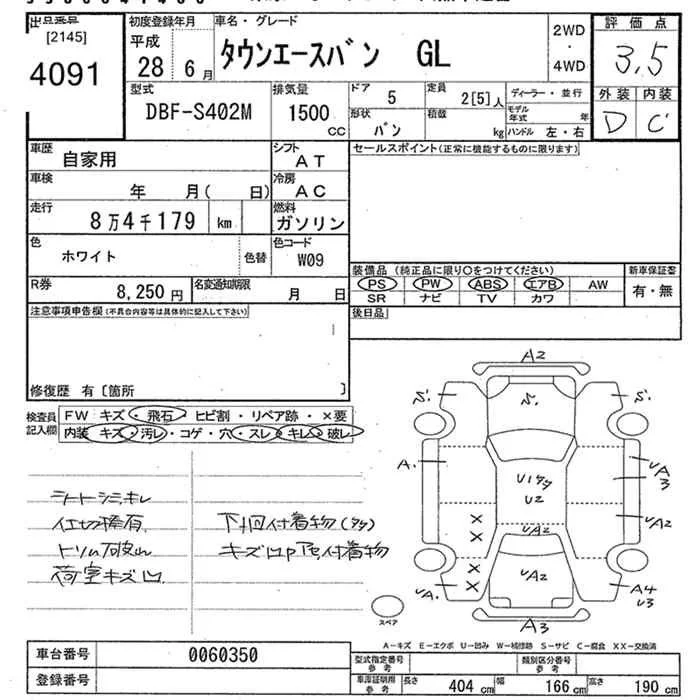 出品番号
[2145]
4091
初度登録年月
平成
28 6月
車名・グレード
タウンエースバン GL
2WD
・
4WD
評価点
3.5
外装 内装
D C
型式
DBF-S402M
排気量
1500
CC
ドア
5
定員
2[5]人
形状
バン
積載
kg
ディーラー・並行
モデル年式 年
ハンドル 左・右
車歴
自家用
シフト
AT
車検
年 月( 日)
冷房
AC
走行
8万4千179 km
燃料
ガソリン
色
ホワイト
色替
色コード
W09
R券
8,250円
名変通知期限
月 日
セールスポイント(正常に機能するものに限ります)
装備品 (純正品に限り○をつけてください)
PS PW ABS エアB AW
SR ナビ TV カワ
新車保証書
有・無
後日品
注意事項申告欄(不具合内容等は具体的に記入して下さい)
修復歴 有 [箇所 ]
検査員記入欄
FW キズ・飛石・ヒビ割・リペア跡・×要
内装 キズ・汚レ・コゲ・穴・スレ・キレ・破レ
シートシミ、キレ
仕切棒有
トリム破れ
荷室キズ凹
下廻付着物(タタ)
A2
S.
S.
S.
A.
U1タタ
U2
UA3
UA2
UA2
X
X
X
X
UA2
UA.
A4
U3
A3
スペア
A-キズ E-エクボ U-凹み W-補修跡 S-サビ C-腐食 XX-交換済
車台番号
0060350
登録番号
型式指定番号
参考
類別区分番号
参考
車庫証明用
参考
長さ 404 cm 幅 166 cm 高さ 190 cm